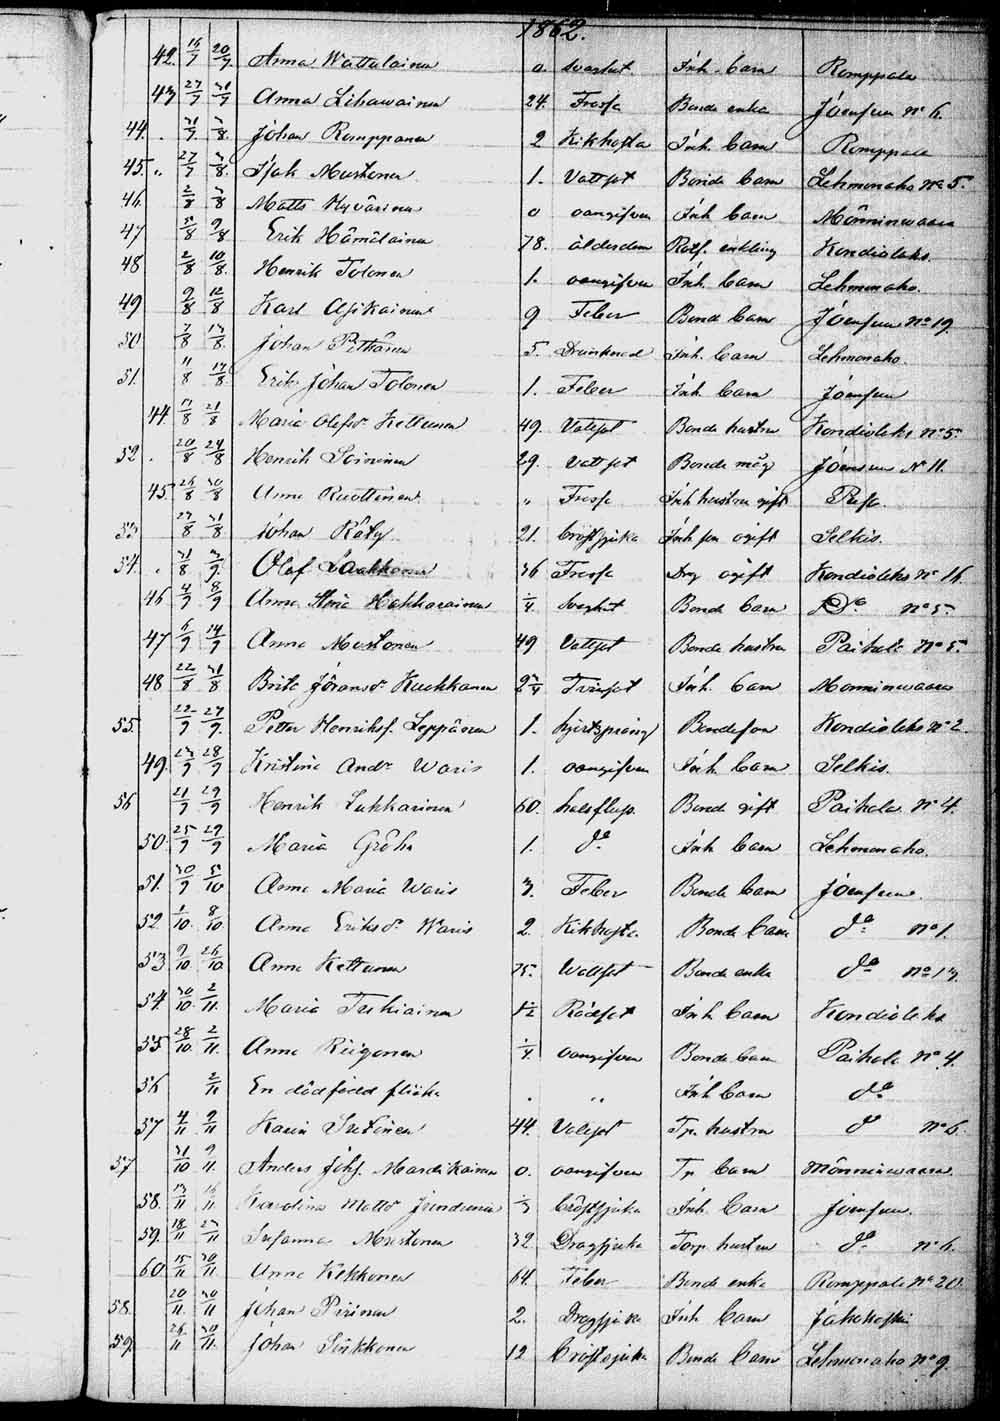 1862.
42. 16/7 20/7 Anna Wattulainen 0 svaghet. Inh. barn Romppala
43 27/7 31/7 Anna Lihawainen 24. Frossa Bonde enka Jóensuu No 6.
44. 31/7 3/8. Johan Romppanen 2 Kikhosta Inh. barn Romppala
45. 27/7 3/8. Isak Mustonen 1. Vattsot Bonde barn Lehmonaho No 5.
46 2/8 3/8 Matts Hyvärinen 0 oangifven Inh barn Mönninwaara
47 5/8 9/8 Erik Hämäläinen 78. ålderdom Rotf. enkling Kondioleks.
48 2/8 10/8. Henrik Tolonen 1. oangifven Inh. barn Lehmonaho.
49 9/8 12/8 Karl Asikainen 9 Feber Bonde barn Jóensuu No 19
50 7/8 13/8. Johan Pitkänen 5. Drunknad Inh. barn Lehmonaho.
51. 11/8 17/8. Erik Johan Tolonen 1. Feber Inh barn Jóensuu
44. 17/8 21/8 Maria Olofsdr Kettunen 49. Vattsot Bonde hustru Kondioleks No 5.
52. 20/8 24/8 Henrik Soininen 29. Vattsot Bonde måg Jóensuu No 11.
45. 26/8 30/8 Anna Ruottinen " Frossa Inh hustru gift
53 27/8 31/8 Johan Räty 21. bröstsjuka Inh son ogift Selkis.
54. 31/8 3/9 Olof Laakkonen 36 Frossa Drg ogift Kondioleks No 16.
46 4/9 8/9 Anna Maria Hakkarainen 1/4 svaghet Bonde barn Do No 5.
47 6/9 14/9 Anna Mustonen 49 Vattsot Bonde hustru Paihola No 5.
48 22/8 31/8 Brita Jöransdr Kuokkanen 2 3/4 Tvinsot Inh. barn Monninwaara
55. 22/9 27/9. Petter Henrikss. Leppänen 1. hjertsprång Bondeson Kondioleks No 2.
49. 23/9 28/9 Kristina Andr Waris 1. oangifven Inh. barn Selkis.
56 21/9 29/9 Henrik Sukkarinen 60. halsfluss. Bonde gift Paihola No 4.
50. 25/9 29/9 Maria Gröhn 1. do Inh barn Lehmonaho.
51. 30/9 5/10 Anna Maria Waris 3. Feber Bonde barn Jóensuu.
52 1/10. 8/10. Anna Eriksdr Waris 2. Kikhosta Bonde barn do No 1.
53 9/10 26/10. Anna Kettunen 75. Wattsot Bonde enka do No 13.
54. 30/10. 2/11. Maria Turkiainen 1/2 Rödsot Inh barn Kondioleks
55 28/10. 2/11. Anna Riigonen 1/4. oangifven Bonde barn Paihola No 4.
56 2/11 En dödfödd flicka " Inh barn do
57 4/11 9/11 Karin Sutinen 44. Vattsot Tp. hustru do No 6.
57. 31/10 9/11. Anders Johs. Mardikainen 0. oangifven Tp barn Mönninwaara.
58. 13/11 16/11 Karolina Mattsdr 1/3 bröstsjuka Inh. barn Jóensuu.
59. 18/11 23/11 Susanna Mustonen 32 Dragsjuka Torp. hustru do No 6.
60 15/11 30/11. Anna Kekkonen 64. Feber Bonde enka Romppala No 20.
58. 20/11. 30/11. Johan Piirinen 2. Dragsjuka Inh barn Jakokoski
59. 26/11 30/11. Johan Sirkkonen 12 bröstsjuka Bonde barn Lehmonaho No 9.